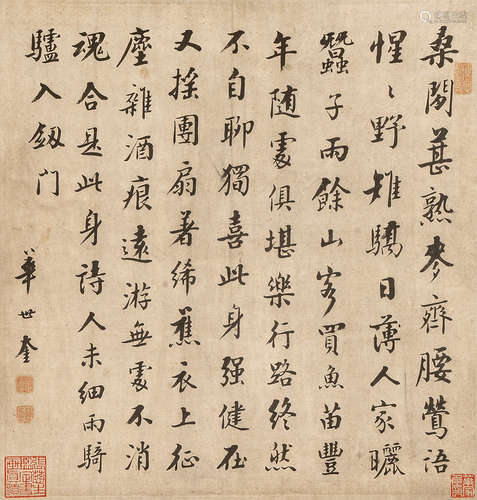 桑間葚熟麥齊腰鶯語
惺〻野雉驕日薄人家曬
蠶子雨餘山客買魚苗豐
年隨處俱堪樂行路終然
不自聊獨喜此身强健在
又搖團扇著絺蕉衣上征
塵雜酒痕遠游無處不消
魂合是此身詩人未細雨騎
驢入劔門
華世奎